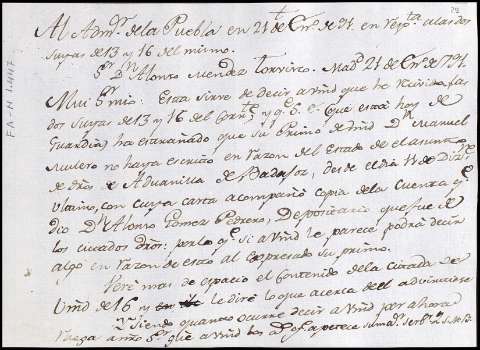 Al Adm.r de la Puebla en 21 de En.o de 91. en resp.ta a las dos
suyas de 13 y 16 del mismo.
S.r D.n Alonso Mendez Torvisco. Mad.d 21 de En.o de 791.
Mui S.r mio: Esta sirve de decir a Vmd que he recivido las
dos suyas de 13 y 16 del corr.te y q.e S. E. (que está hoy de
Guardia) ha estrañado que su Primo de Vmd D.n Manuel
no haya escrito en razon del Estado de el asunto
de dros. de Aduanilla de Badajoz, desde el dia 14 de Diz.re
ultimo, con cuya carta acompañó copia de la Cuenta q.e
dió D.n Alonso Gomez Pedrero, Depositario que fue de
los citados dros: por lo q.e si a Vmd le parece podrá decir
algo en razon de esto al expresado su primo.
Veré mas de espacio el contenido de la citada de
Vmd de 16 y le diré lo que acerca de el
Y siendo quanto ocurre decir a Vmd por ahora